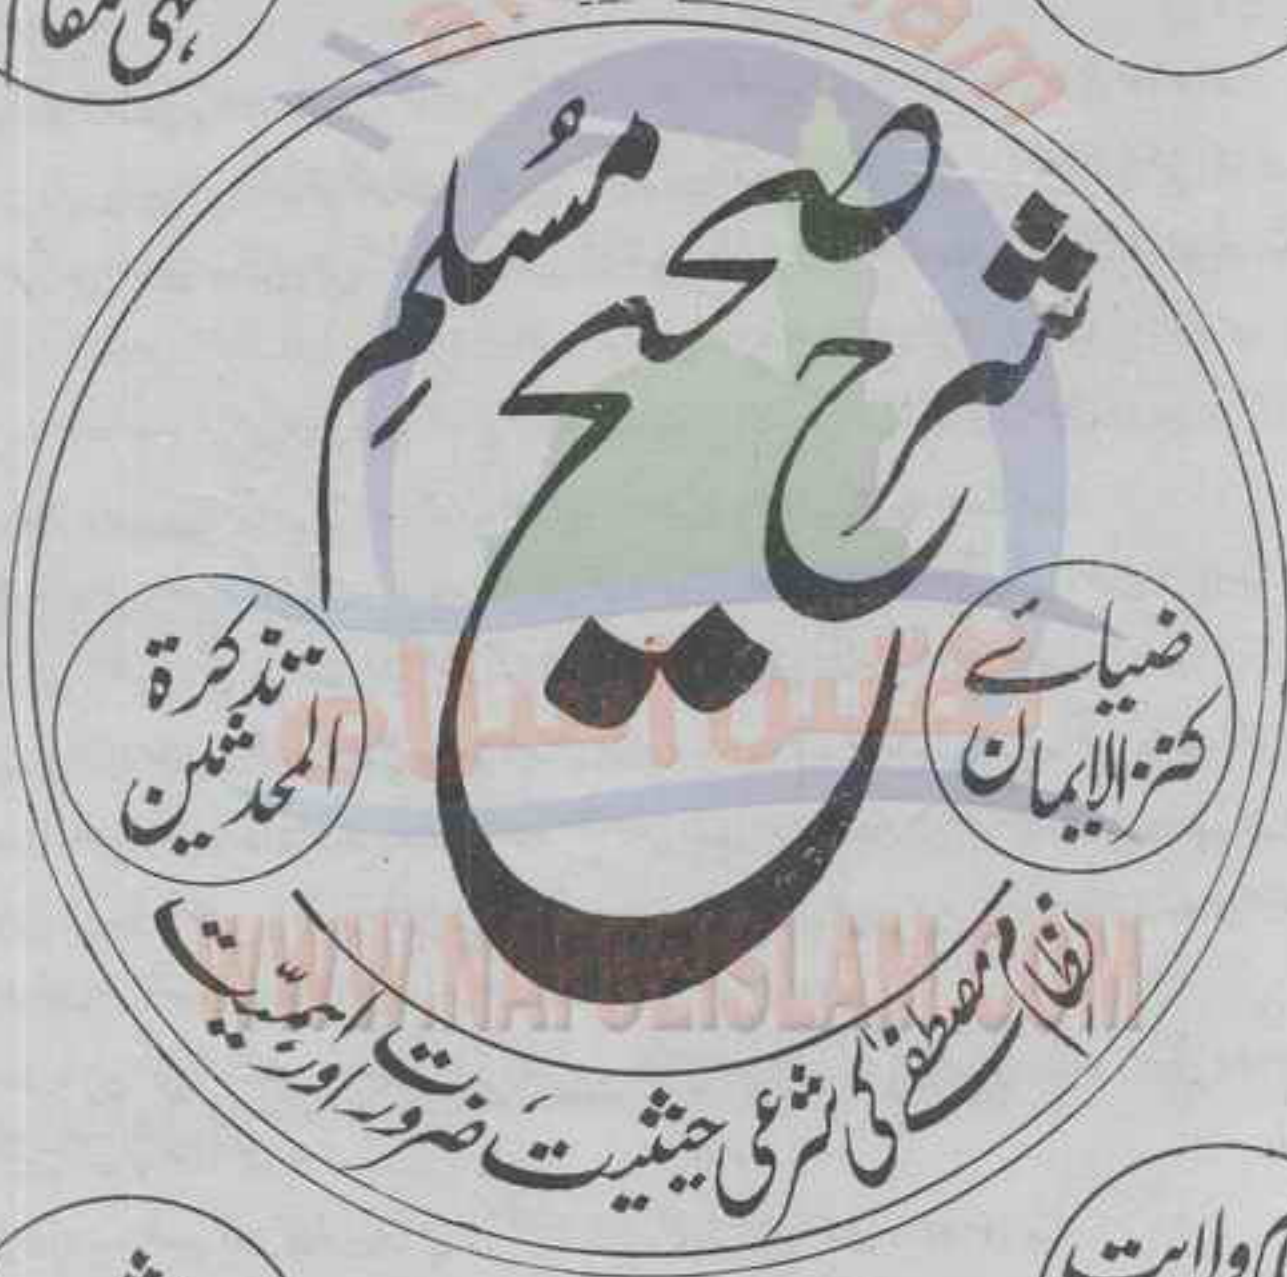 شرح صحیح مسُلمِ
ضیائے
کنزالایمان
تذکرۃ
المحدثین
نظام مصطفےٰ کی شرعی حیثیت، ضرورت اور اہمیّت
نفس اسلام
WWW.NAFSEISLAM.COM